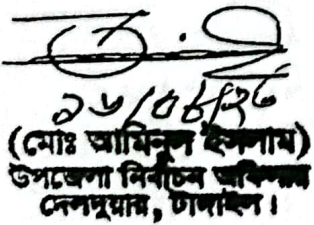 ১৬/০৮/২৫
(মোঃ আমিনুল ইসলাম)
উপজেলা নির্বাচন অফিসার
দেলদুয়ার, টাঙ্গাইল।